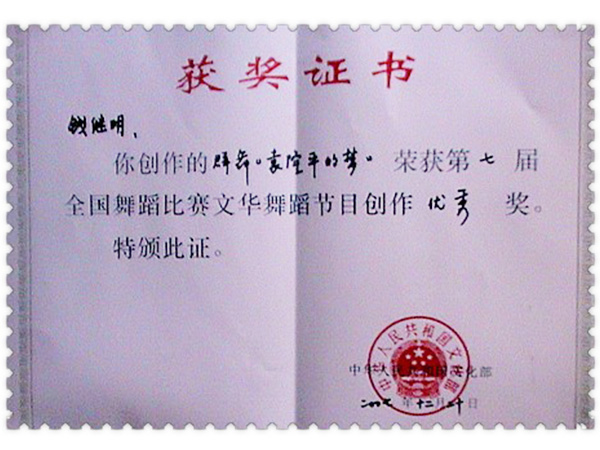 获奖证书
钱继明、
你创作的群舞“袁隆平的梦”荣获第七届
全国舞蹈比赛文华舞蹈节目创作优秀奖。
特颁此证。
中华人民共和国文化部
中华人民共和国文化部
二〇〇七年十二月二十日